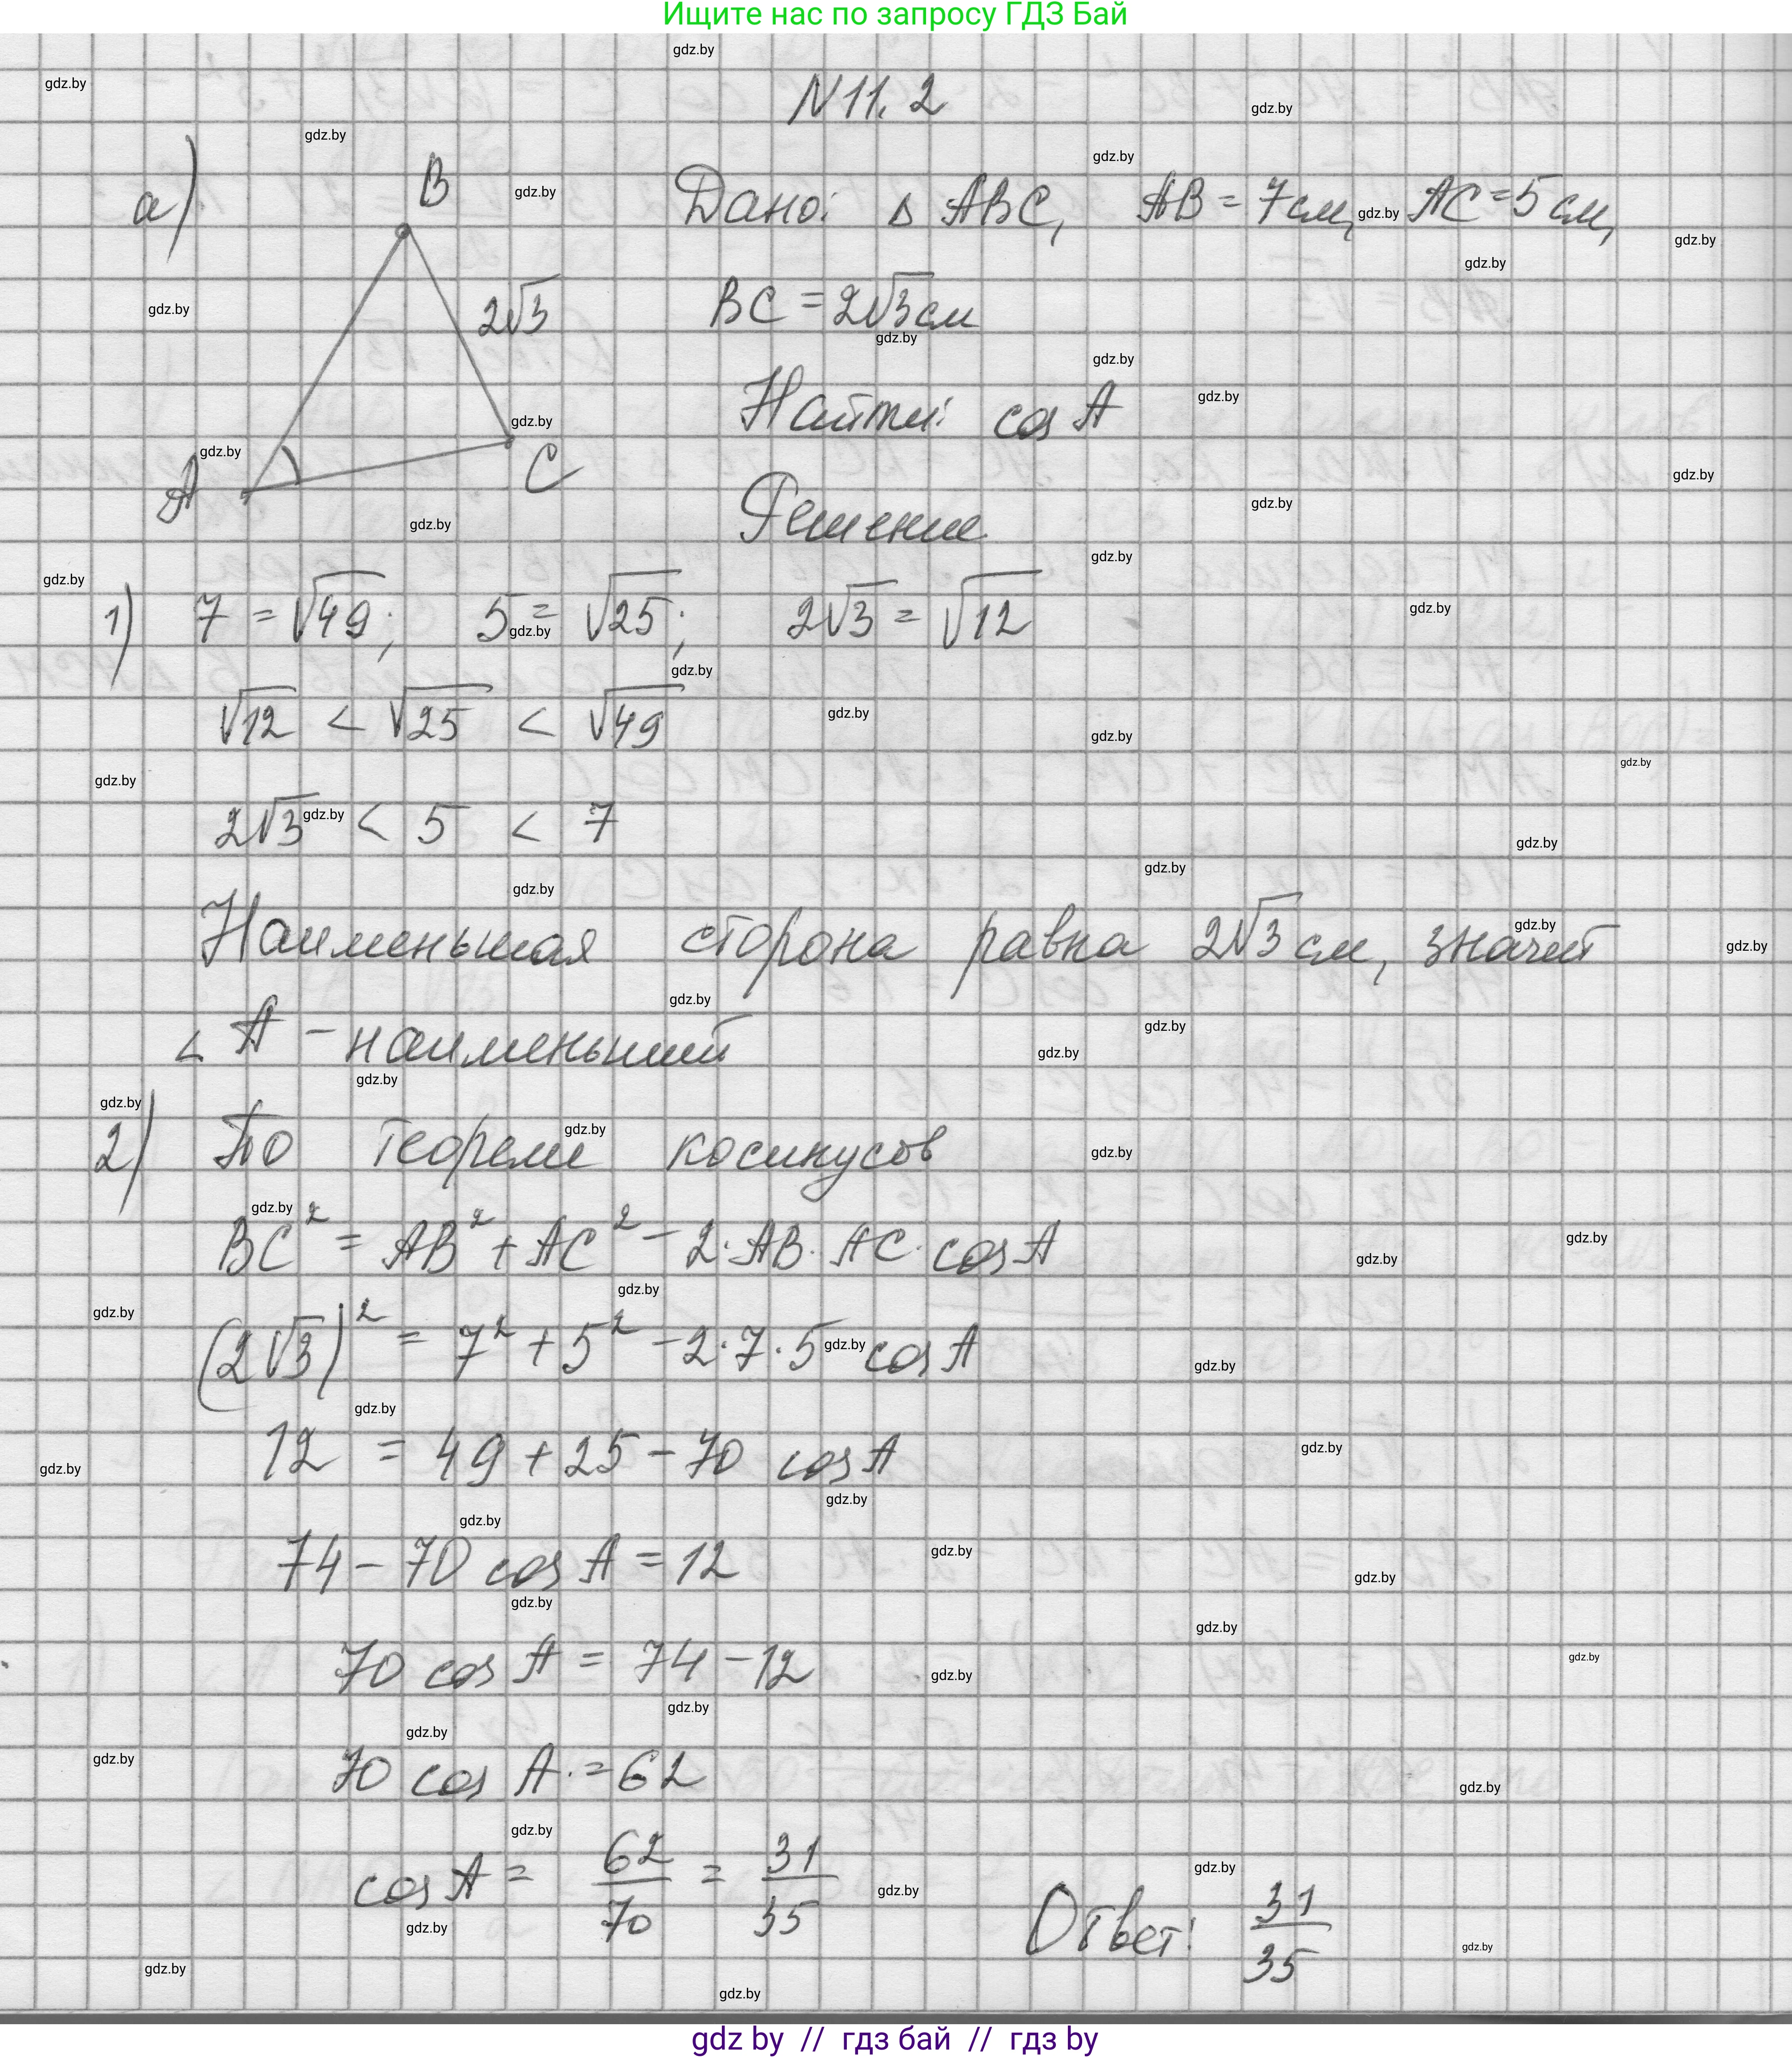 Ищите нас по запросу ГДЗ Бай
N 11.2
а)
B
2√3
A
C
Дано: Δ ABC, AB = 7см, AC = 5 см,
BC = 2√3 см
Найти: cos A
Решение
1) 7 = √49; 5 = √25; 2√3 = √12
√12 < √25 < √49
2√3 < 5 < 7
Наименьшая сторона равна 2√3 см, значит
∠ A – наименьший
2) По теореме косинусов
BC² = AB² + AC² – 2·AB·AC·cos A
(2√3)² = 7² + 5² – 2·7·5 cos A
12 = 49 + 25 – 70 cos A
74 – 70 cos A = 12
70 cos A = 74 – 12
70 cos A = 62
cos A = 62/70 = 31/35
Ответ: 31/35
gdz by // гдз бай // гдз by